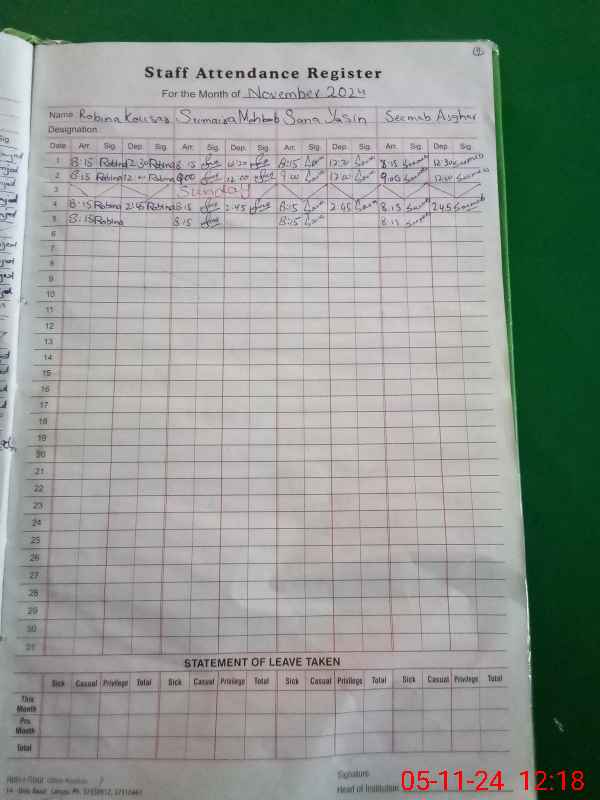 Staff Attendance Register
For the Month of November 2024
Name Robina Kousar Sumaira Mehboob Sana Yasin Seemab Asghar
Designation
Date Arr. Sig. Dep. Sig. Arr. Sig. Dep. Sig. Arr. Sig. Dep. Sig. Arr. Sig. Dep. Sig.
1 8:15 Robina 12:30 Robina 8:15 12:30 8:15 Sana 12:30 Sana 8:15 Seemab 12:30 Seemab
2 8:15 Robina 12:00 Robina 9:00 12:00 9:00 Sana 12:00 Sana 9:00 Seemab 12:00 Seemab
3 Sunday
4 8:15 Robina 2:45 Robina 8:15 2:45 8:15 Sana 2:45 Sana 8:15 Seemab 2:45 Seemab
5 8:15 Robina 8:15 8:15 Sana 8:15 Seemab
6
7
8
9
10
11
12
13
14
15
16
17
18
19
20
21
22
23
24
25
26
27
28
29
30
31
STATEMENT OF LEAVE TAKEN
Sick Casual Privilege Total Sick Casual Privilege Total Sick Casual Privilege Total Sick Casual Privilege Total
This Month
Pre. Month
Total
Signature
Head of Institution
05-11-24 12:18